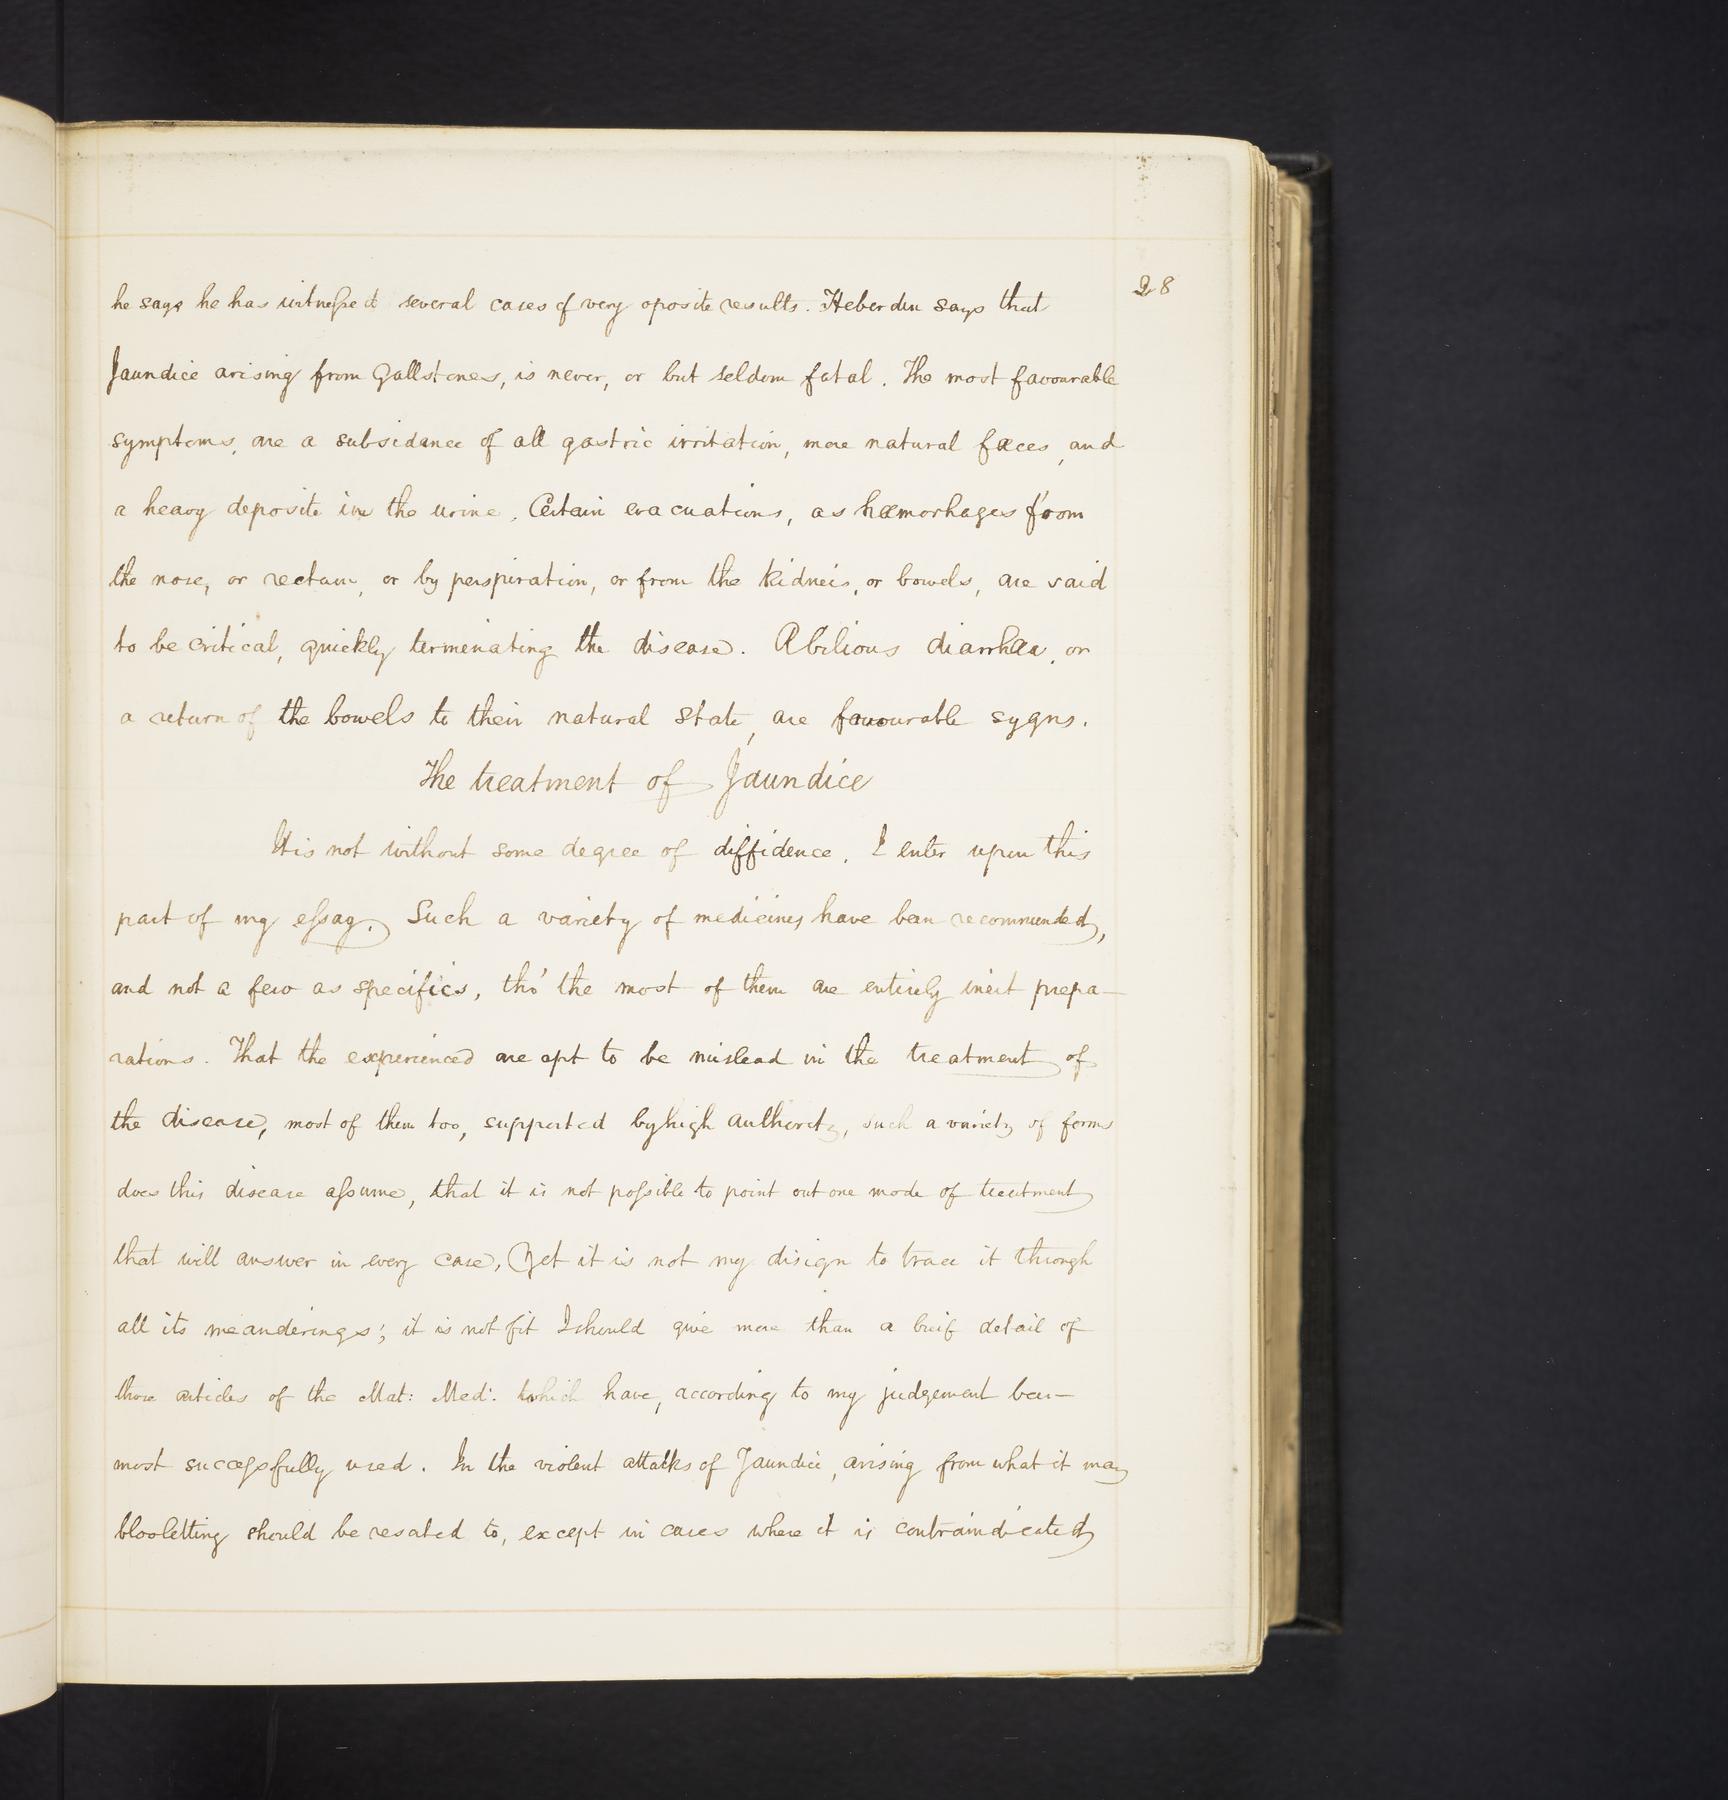 28
he says he has witnessed several cases of very oposite results. Heberden says that
Jaundice arising from Gallstones, is never, or but seldom fatal. The most favourable
symptoms, are a subsidance of all gastric irritation, more natural fæces, and
a heavy deposite in the urine. Certain evacuations, as hæmorhages from
the nose, or rectum, or by perspiration, or from the kidneis, or bowels, are said
to be critical, quickly termenating the disease. A bilious diarrhæa, or
a return of the bowels to their natural state, are favourable sygns.
The treatment of Jaundice
It is not without some degree of diffidence, I enter upon this
part of my essay. Such a variety of medicines have been recommended,
and not a few as specifics, tho' the most of them are entirely inert prepa-
rations. That the experienced are apt to be mislead in the treatment of
the disease, most of them too, supported by high authority, such a variety of forms
does this disease assume, that it is not possible to point out one mode of treatment
that will answer in every case, Yet it is not my disign to trace it through
all its meanderings; it is not fit I should give more than a brief detail of
those articles of the Mat: Med: which have, according to my judgement been-
most successfully used. In the violent attacks of Jaundice, arising from what it may
blooletting should be resated to, except in cases where it is contraindicated